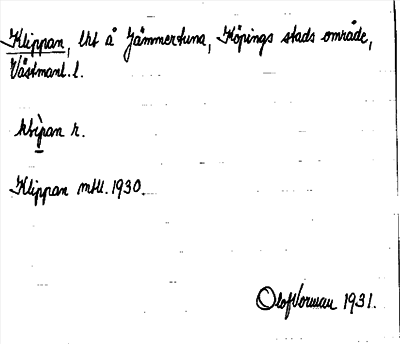 Klippan, lht å Jämmertuna, Köpings stads område,
Västmanl. l.
klìpan r.
Klippan mtll. 1930.
Olof Vorman 1931.